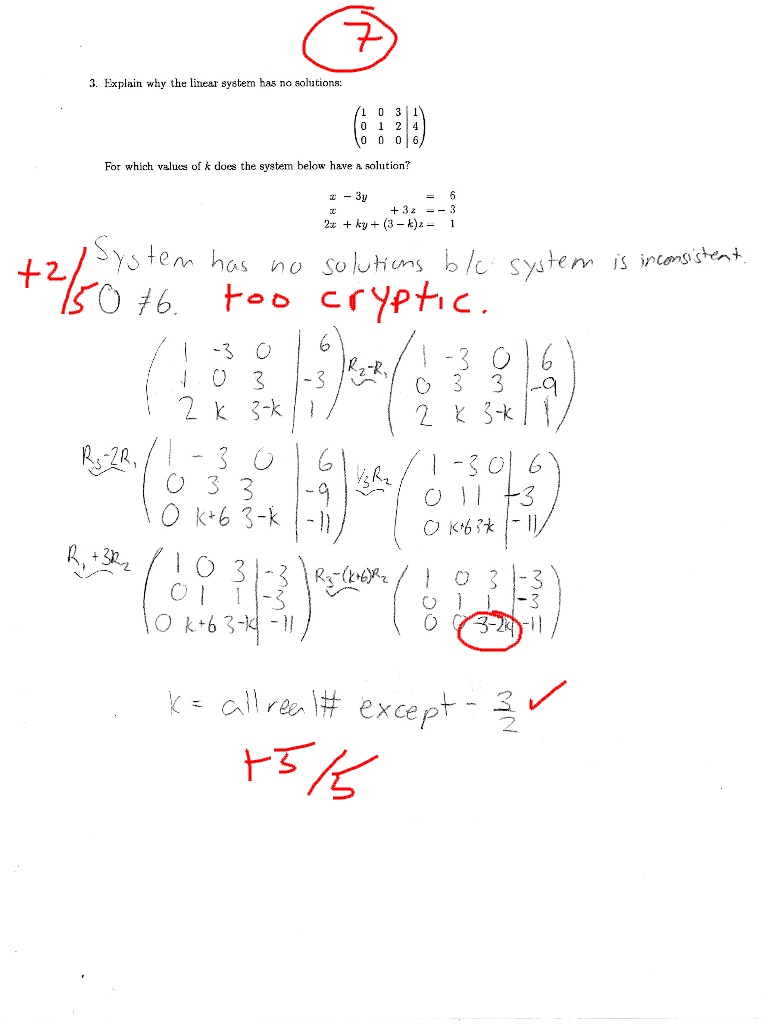 7
3. Explain why the linear system has no solutions:
1 0 3 | 1
0 1 2 | 4
0 0 0 | 6
For which values of k does the system below have a solution?
x − 3y = 6
x + 3z = − 3
2x + ky + (3 − k)z = 1
System has no solutions b/c system is inconsistent.
+2/5 0 ≠ 6. too cryptic.
1 -3 0 | 6 R2-R1 1 -3 0 | 6
1 0 3 | -3 0 3 3 | -9
2 k 3-k | 1 2 k 3-k | 1
R3-2R1 1 -3 0 | 6 1/3R2 1 -3 0 | 6
0 3 3 | -9 0 1 1 | -3
0 k+6 3-k | -11 0 k+6 3-k | -11
R1+3R2 1 0 3 | -3 R3-(k+6)R2 1 0 3 | -3
0 1 1 | -3 0 1 1 | -3
0 k+6 3-k | -11 0 0 3-2k | -11
k = all real # except - 3/2 ✓
+5/5